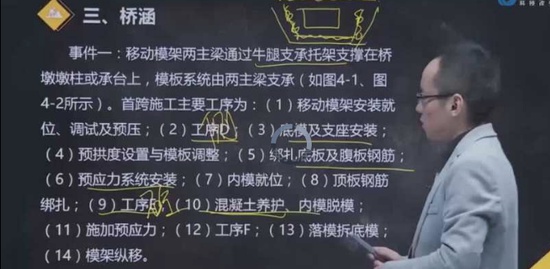 三、桥涵
事件一：移动模架两主梁通过牛腿支承托架支撑在桥
墩墩柱或承台上，模板系统由两主梁支承（如图4-1、图
4-2所示）。首跨施工主要工序为：（1）移动模架安装就
位、调试及预压；（2）工序D；（3）底模及支座安装；
（4）预拱度设置与模板调整；（5）绑扎底板及腹板钢筋；
（6）预应力系统安装；（7）内模就位；（8）顶板钢筋
绑扎；（9）工序E；（10）混凝土养护、内模脱模；
（11）施加预应力；（12）工序F；（13）落模拆底模；
（14）模架纵移。